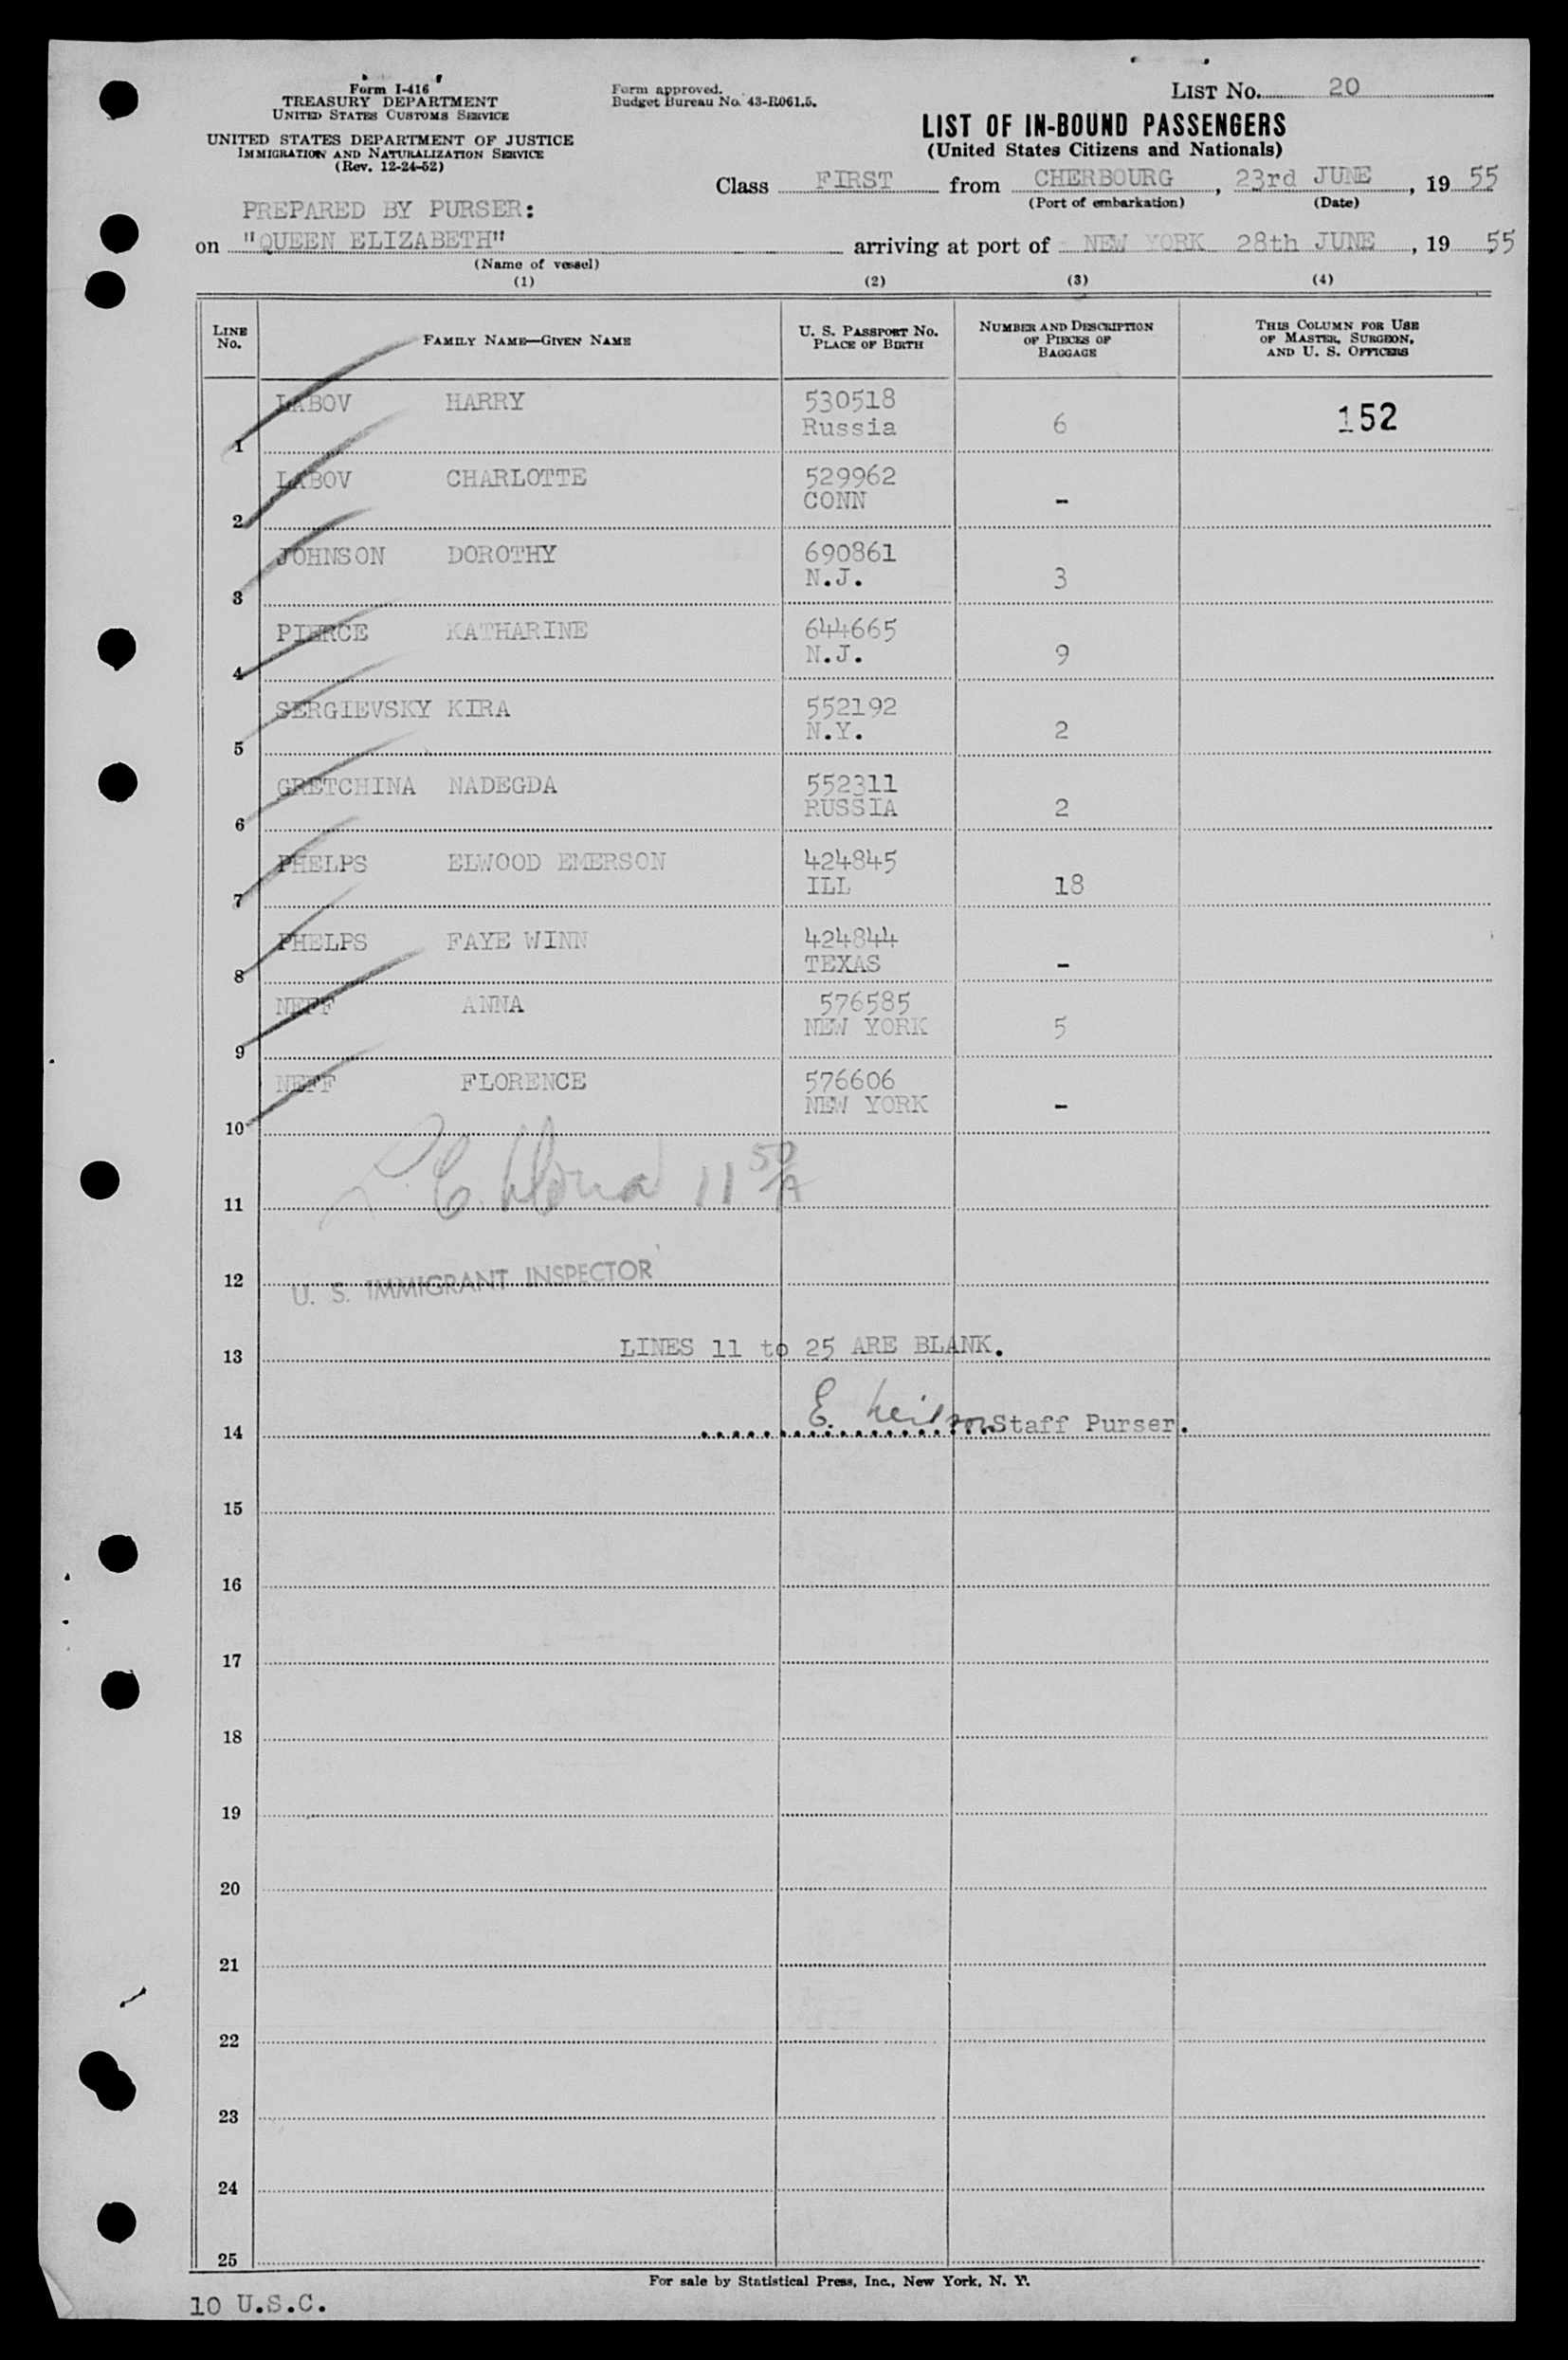 Form I-416
TREASURY DEPARTMENT
UNITED STATES CUSTOMS SERVICE
UNITED STATES DEPARTMENT OF JUSTICE
IMMIGRATION AND NATURALIZATION SERVICE
(Rev. 12-24-52)
Form approved.
Budget Bureau No. 43-R061.5.
LIST No. 20
LIST OF IN-BOUND PASSENGERS
(United States Citizens and Nationals)
Class FIRST from CHERBOURG, 23rd JUNE, 19 55
(Port of embarkation) (Date)
PREPARED BY PURSER:
on "QUEEN ELIZABETH" arriving at port of NEW YORK 28th JUNE, 19 55
(Name of vessel)
(1) (2) (3) (4)
LINE No. FAMILY NAME—GIVEN NAME U. S. PASSPORT No. PLACE OF BIRTH NUMBER AND DESCRIPTION OF PIECES OF BAGGAGE THIS COLUMN FOR USE OF MASTER, SURGEON, AND U. S. OFFICERS
1 LABOV HARRY 530518 Russia 6 152
2 LABOV CHARLOTTE 529962 CONN -
3 JOHNSON DOROTHY 690861 N.J. 3
4 PIERCE KATHARINE 644665 N.J. 9
5 SERGIEVSKY KIRA 552192 N.Y. 2
6 GRETCHINA NADEGDA 552311 RUSSIA 2
7 PHELPS ELWOOD EMERSON 424845 ILL 18
8 PHELPS FAYE WINN 424844 TEXAS -
9 NEFF ANNA 576585 NEW YORK 5
10 NEFF FLORENCE 576606 NEW YORK -
11 11 50/A
12 U. S. IMMIGRANT INSPECTOR
13 LINES 11 to 25 ARE BLANK.
14 E. Neilson Staff Purser.
15
16
17
18
19
20
21
22
23
24
25
For sale by Statistical Press, Inc., New York, N. Y.
10 U.S.C.